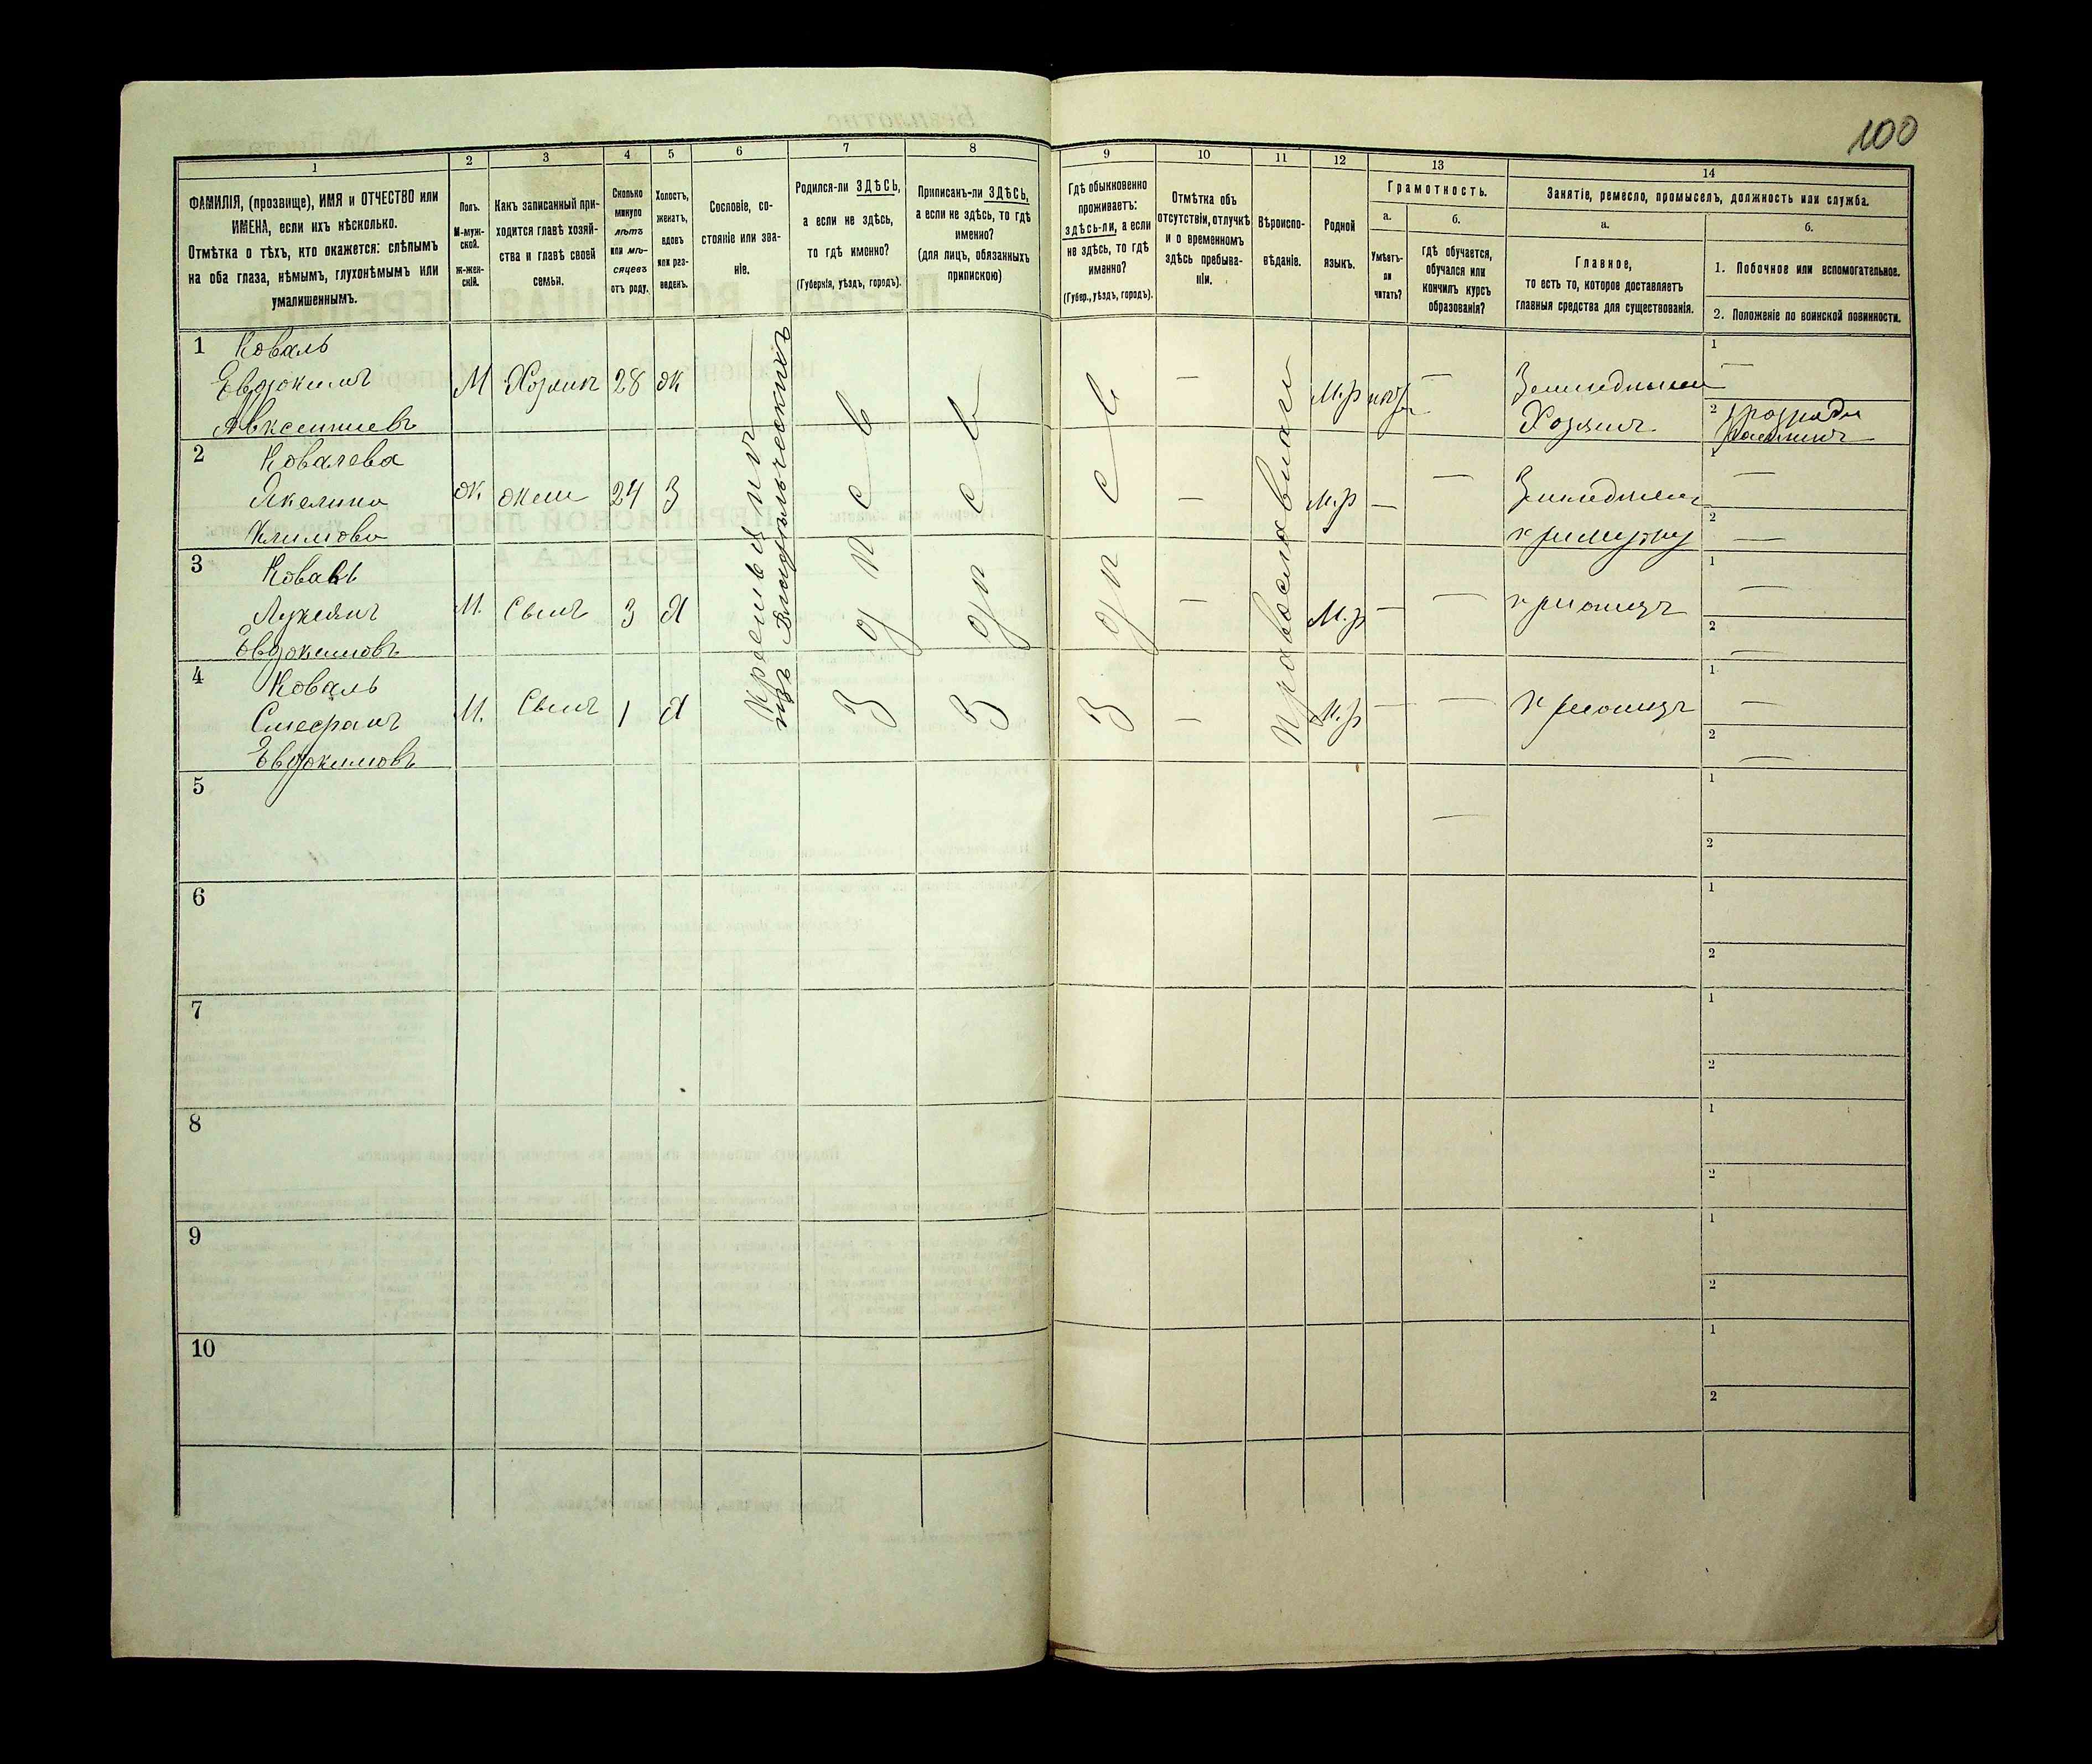 100
1
2
3
4
5
6
7
8
9
10
11
12
13
14
ФАМИЛІЯ, (прозвище), ИМЯ и ОТЧЕСТВО или
ИМЕНА, если ихъ нѣсколько.
Отмѣтка о тѣхъ, кто окажется: слѣпымъ
на оба глаза, нѣмымъ, глухонѣмымъ или
умалишеннымъ.
Полъ.
М-муж-
ской.
ж-жен-
скій.
Какъ записанный при-
ходится главѣ хозяй-
ства и главѣ своей
семьи.
Сколько
минуло
лѣтъ
или мѣ-
сяцевъ
отъ роду.
Холостъ,
женатъ,
вдовъ
или раз-
веденъ.
Сословіе, со-
стояніе или зва-
ніе.
Родился-ли ЗДѢСЬ,
а если не здѣсь,
то гдѣ именно?
(Губернія, уѣздъ, городъ).
Приписанъ-ли ЗДѢСЬ,
а если не здѣсь, то гдѣ
именно?
(для лицъ, обязанныхъ
припискою)
Гдѣ обыкновенно
проживаетъ:
здѣсь-ли, а если
не здѣсь, то гдѣ
именно?
(Губер., уѣздъ, городъ).
Отмѣтка объ
отсутствіи, отлучкѣ
и о временномъ
здѣсь пребыва-
ніи.
Вѣроиспо-
вѣданіе.
Родной
языкъ.
Грамотность.
а.
Умѣетъ-
ли
читать?
б.
Гдѣ обучается,
обучался или
кончилъ курсъ
образованія?
Занятіе, ремесло, промыселъ, должность или служба.
а.
Главное,
то есть то, которое доставляетъ
главныя средства для существованія.
б.
1. Побочное или вспомогательное.
2. Положеніе по воинской повинности.
1 Коваль
Евдокимъ
Авксентиевъ
М Хозяин 28 ж
— М.р —
Хозяинъ
1 —
2
2 Ковалева
Акелина
Климова
ж. жена 24 З
— М.р — —
1 —
2 —
3 Коваль
Лукеянъ
Евдокимовъ
М. Сынъ 3 Х
— М.р — —
при отцѣ
1 —
2 —
4 Коваль
Стефанъ
Евдокимовъ
М. Сынъ 1 Х
— М.р — —
при отцѣ
1 —
2 —
изъ Владѣльческихъ
5
—
1
2
6
1
2
7
1
2
8
1
2
9
1
2
10
1
2